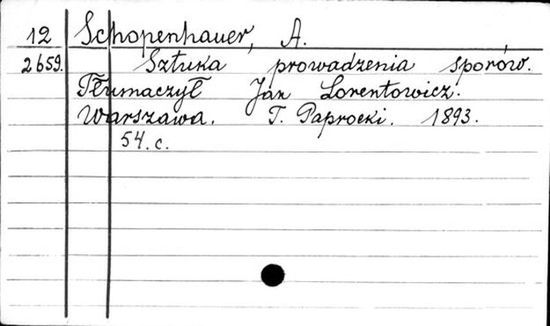 12 Schopenhauer, A.
2659. Sztuka prowadzenia sporów.
Tłumaczył Jan Lorentowicz.
Warszawa. T. Paprocki. 1893.
54. c.